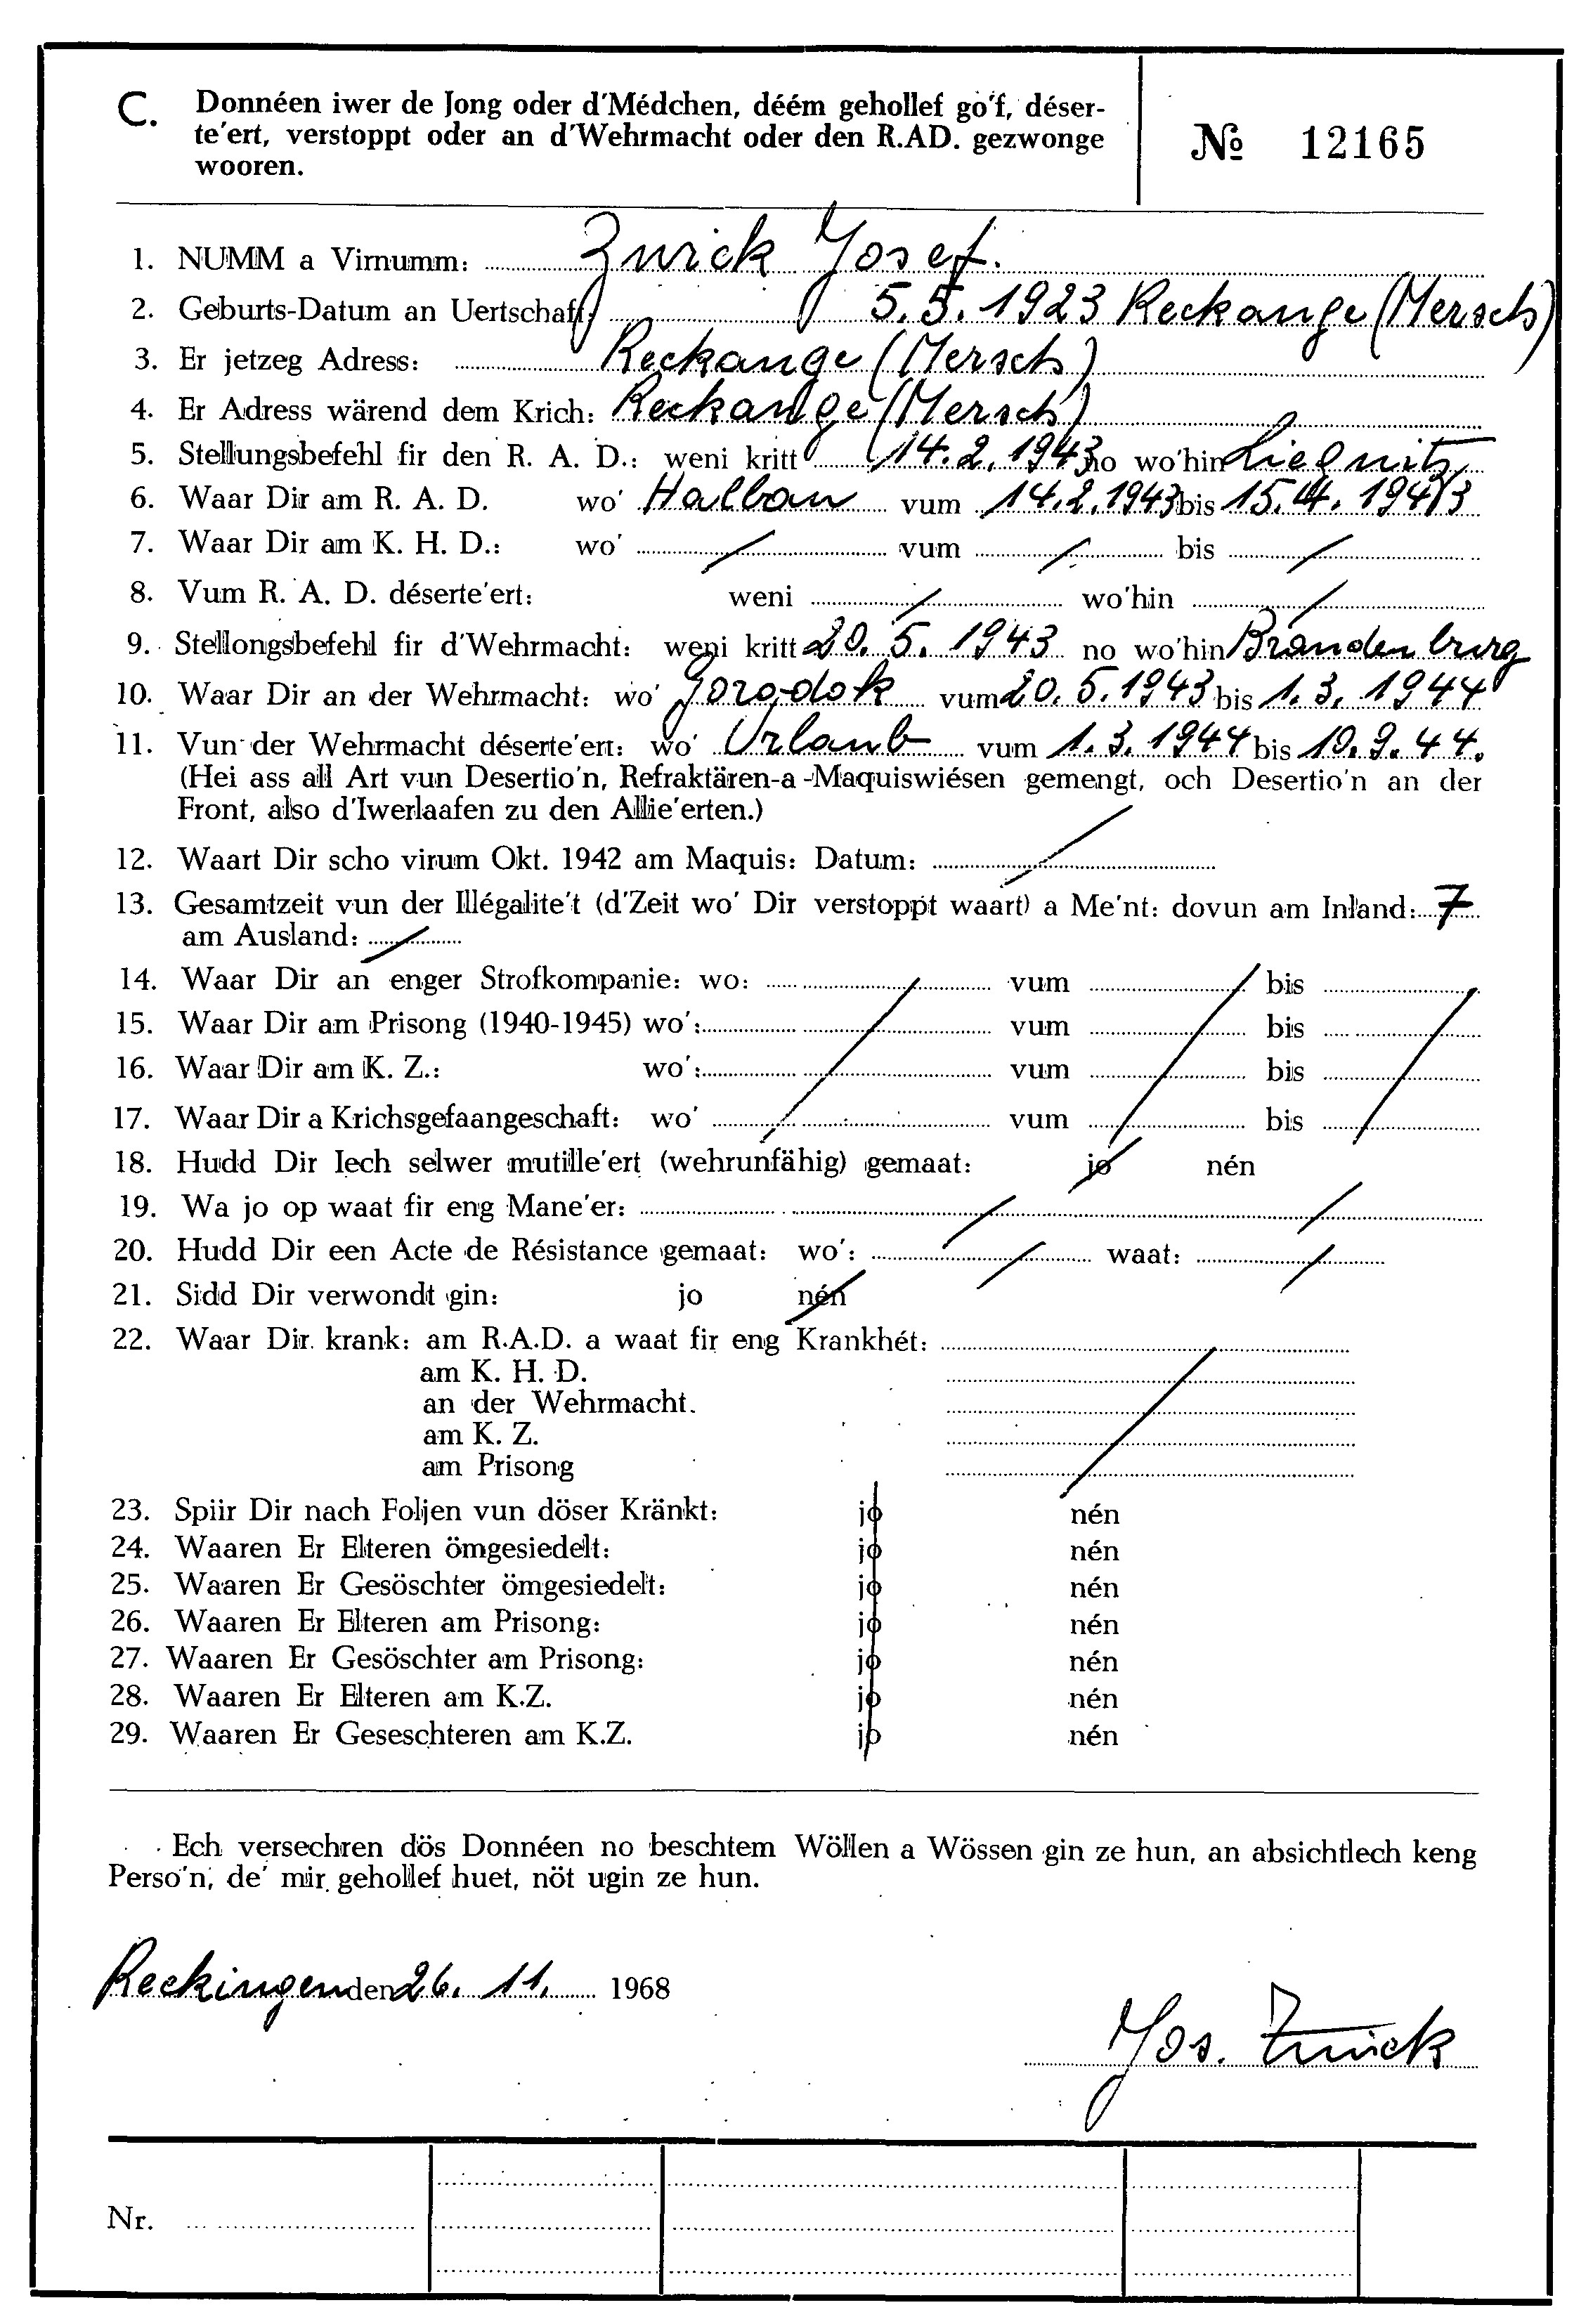 C. Donnéen iwer de Jong oder d'Médchen, déém gehollef go'f, déser-
te'ert, verstoppt oder an d'Wehrmacht oder den R.AD. gezwonge
wooren.
№ 12165
1. NUMM a Virnumm: Zwick Josef.
2. Geburts-Datum an Uertschaft: 5.5.1923 Reckange (Mersch)
3. Er jetzeg Adress: Reckange (Mersch)
4. Er Adress wärend dem Krich: Reckange (Mersch)
5. Stellungsbefehl fir den R. A. D.: weni kritt 14.2.1943 no wo'hin Liegnitz
6. Waar Dir am R. A. D. wo' Halbau vum 14.2.1943 bis 15.4.1943
7. Waar Dir am K. H. D.: wo' / vum / bis /
8. Vum R. A. D. déserte'ert: weni / wo'hin /
9. Stellongsbefehl fir d'Wehrmacht: weni kritt 20.5.1943 no wo'hin Brandenburg
10. Waar Dir an der Wehrmacht: wo' Gorodok vum 20.5.1943 bis 1.3.1944
11. Vun der Wehrmacht déserte'ert: wo' Urlaub vum 1.3.1944 bis 10.9.44.
(Hei ass all Art vun Desertio'n, Refraktären-a-Maquiswiésen gemengt, och Desertio'n an der
Front, also d'Iwerlaafen zu den Allie'erten.)
12. Waart Dir scho virum Okt. 1942 am Maquis: Datum: /
13. Gesamtzeit vun der Illégalite't (d'Zeit wo' Dir verstoppt waart) a Me'nt: dovun am Inland: 7
am Ausland: /
14. Waar Dir an enger Strofkompanie: wo: vum bis
15. Waar Dir am Prisong (1940-1945) wo': vum bis
16. Waar Dir am K. Z.: wo': vum bis
17. Waar Dir a Krichsgefaangeschaft: wo' vum bis
18. Hudd Dir Iech selwer mutille'ert (wehrunfähig) gemaat: jo nén
19. Wa jo op waat fir eng Mane'er: / /
20. Hudd Dir een Acte de Résistance gemaat: wo': / waat: /
21. Sidd Dir verwondt gin: jo nén
22. Waar Dir krank: am R.A.D. a waat fir eng Krankhét:
am K. H. D.
an der Wehrmacht.
am K. Z.
am Prisong
23. Spiir Dir nach Foljen vun döser Kränkt: jo nén
24. Waaren Er Elteren ömgesiedelt: jo nén
25. Waaren Er Gesöschter ömgesiedelt: jo nén
26. Waaren Er Elteren am Prisong: jo nén
27. Waaren Er Gesöschter am Prisong: jo nén
28. Waaren Er Elteren am K.Z. jo nén
29. Waaren Er Geseschteren am K.Z. jo nén
Ech versechren dös Donnéen no beschtem Wöllen a Wössen gin ze hun, an absichtlech keng
Perso'n, de' mir gehollef huet, nöt ugin ze hun.
Reckingen den 26. 11. 1968
Jos. Zwick
Nr.